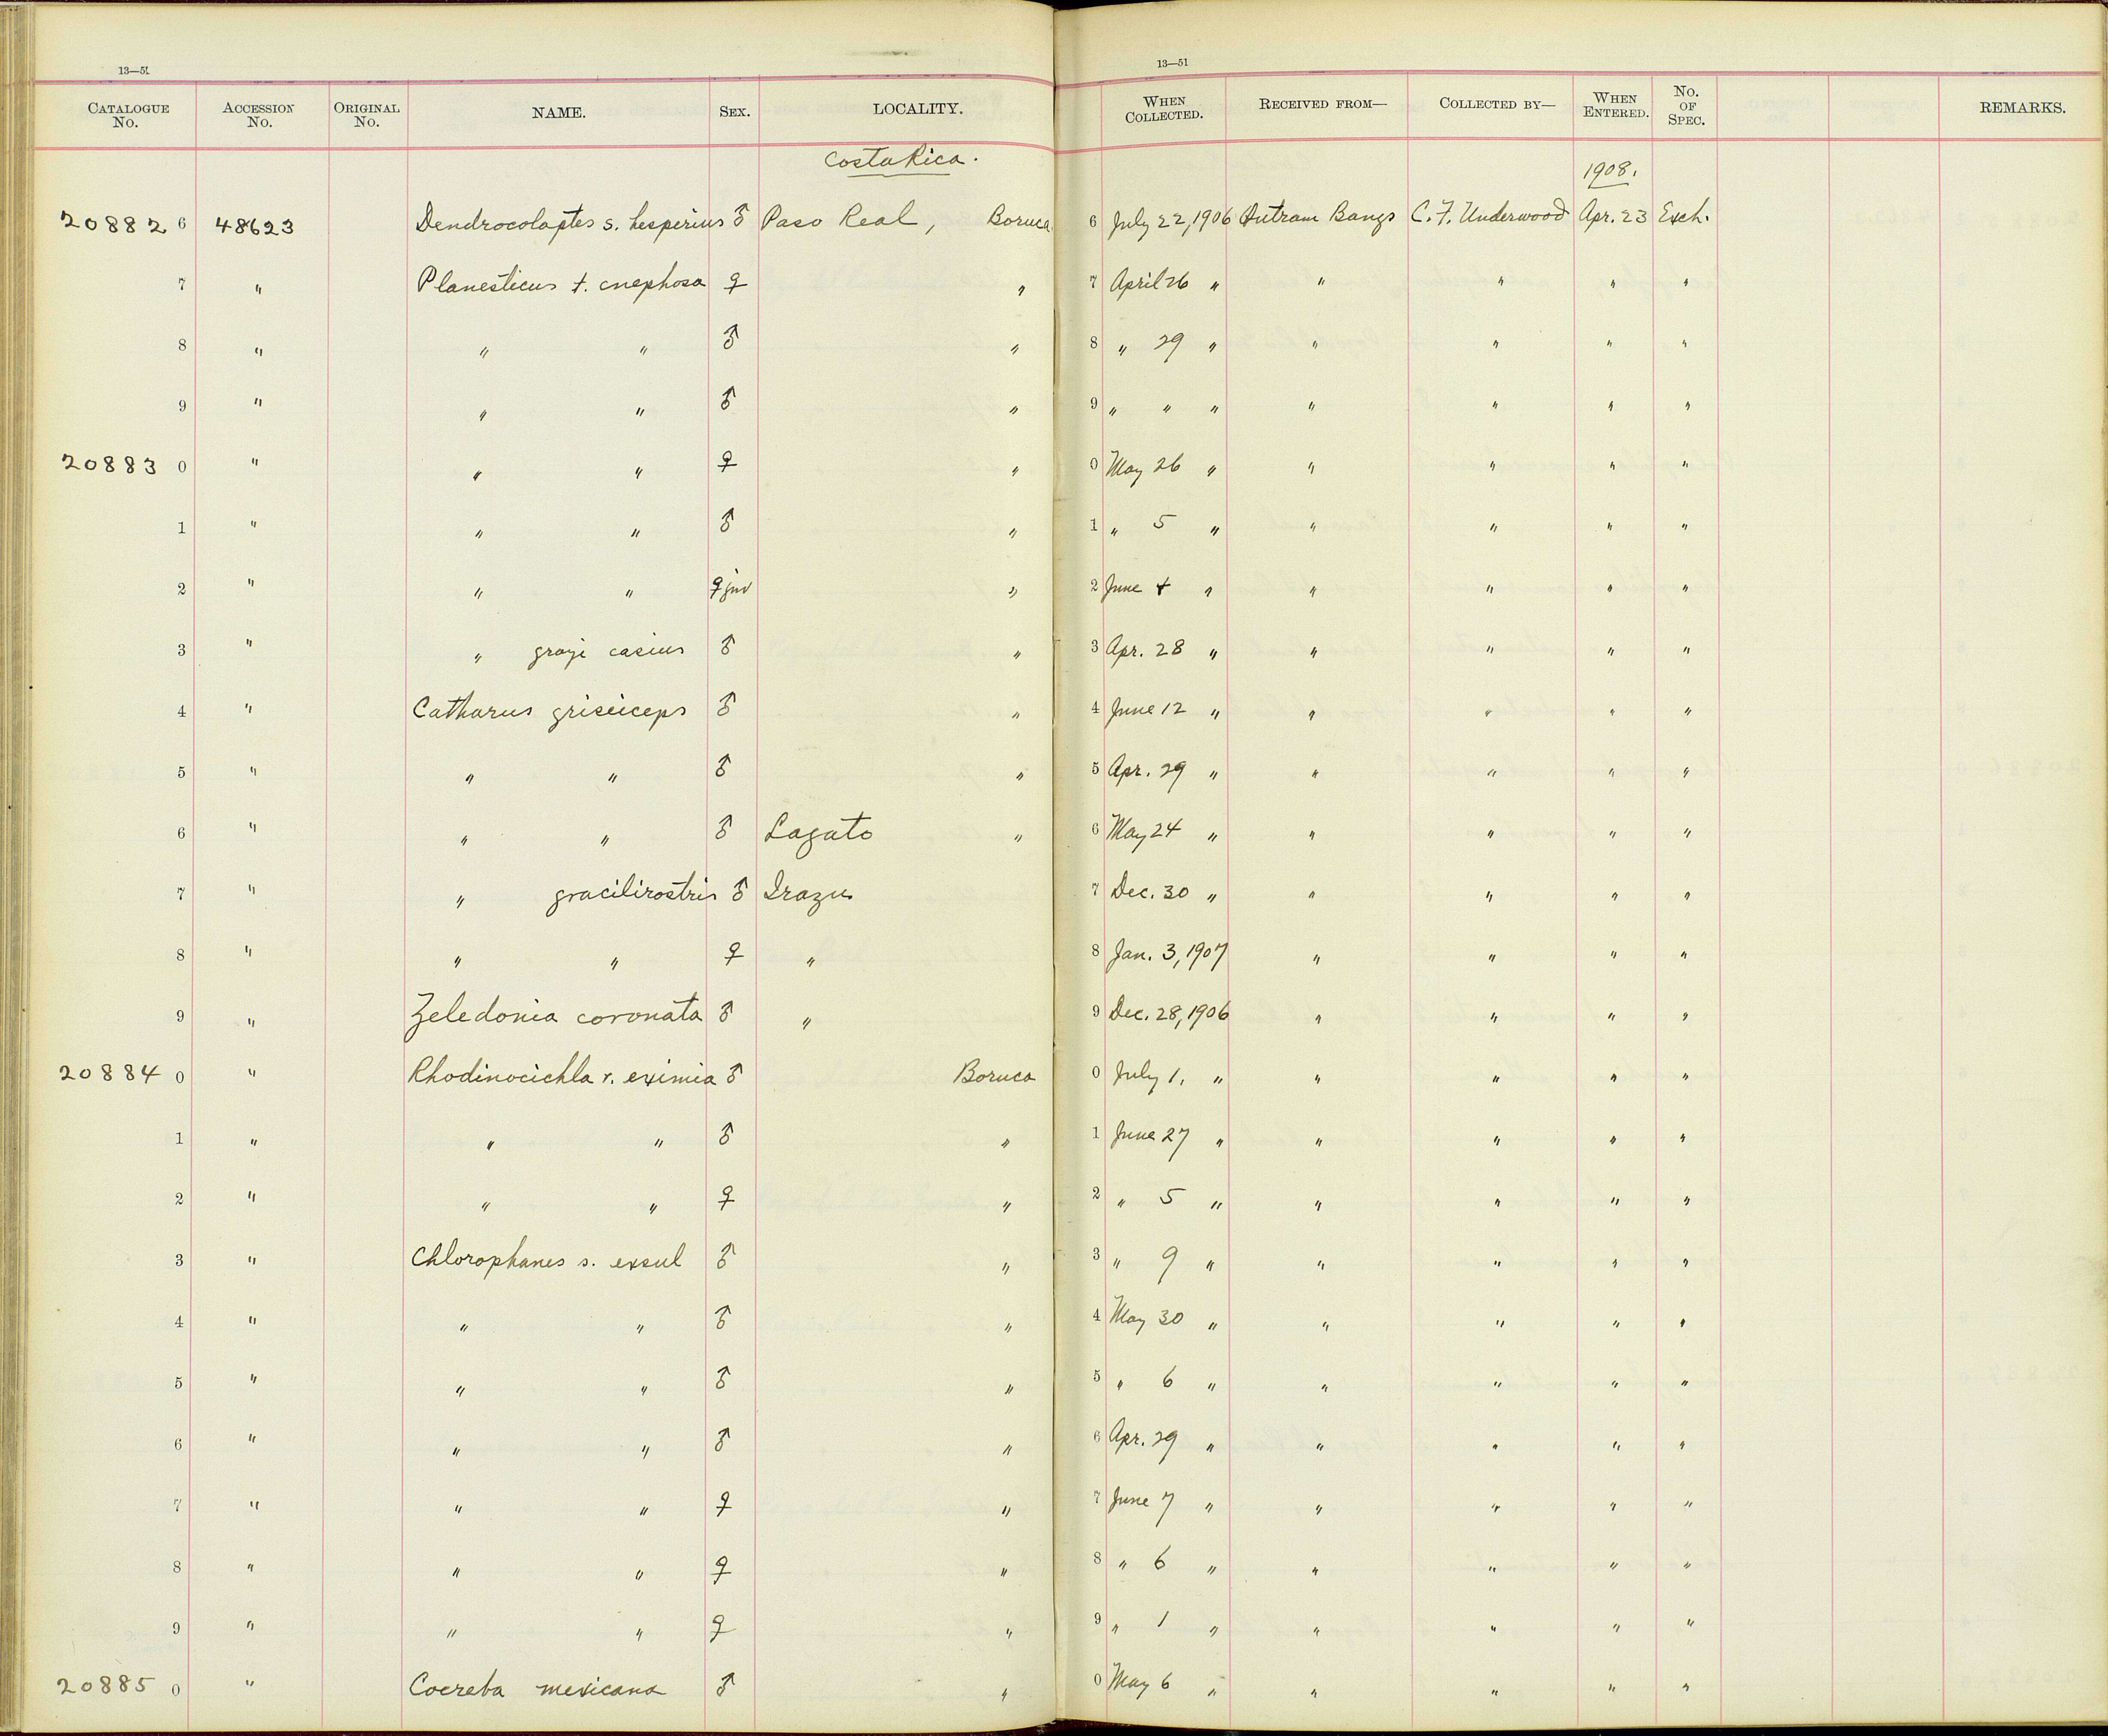 13—51
13—51
CATALOGUE No. ACCESSION No. ORIGINAL No. NAME. SEX. LOCALITY. WHEN COLLECTED. RECEIVED FROM— COLLECTED BY— WHEN ENTERED. No. OF SPEC. REMARKS.
Costa Rica. 1908.
20882 6 48623 Dendrocolaptes s. hesperius ♂ Paso Real, Boruca 6 July 22, 1906 Outram Bangs C. F. Underwood Apr. 23 Exch.
7 " Planesticus t. cnephosa ♀ " 7 April 26 " " " " "
8 " " " ♂ " 8 " 29 " " " " "
9 " " " ♂ " 9 " " " " " " "
20883 0 " " " ♀ " 0 May 26 " " " " "
1 " " " ♂ " 1 " 5 " " " " "
2 " " " ♀ juv " 2 June 4 " " " " "
3 " " grayi casius ♂ " 3 Apr. 28 " " " " "
4 " Catharus griseiceps ♂ " 4 June 12 " " " " "
5 " " " ♂ " 5 Apr. 29 " " " " "
6 " " " ♂ Lagato " 6 May 24 " " " " "
7 " " gracilirostris ♂ Irazu 7 Dec. 30 " " " " "
8 " " " ♀ " 8 Jan. 3, 1907 " " " "
9 " Zeledonia coronata ♂ " 9 Dec. 28, 1906 " " " "
20884 0 " Rhodinocichla r. eximia ♂ Boruca 0 July 1, " " " " "
1 " " " ♂ " 1 June 27 " " " " "
2 " " " ♀ " 2 " 5 " " " " "
3 " Chlorophanes s. exsul ♂ " 3 " 9 " " " " "
4 " " " ♂ " 4 May 30 " " " " "
5 " " " ♂ " 5 " 6 " " " " "
6 " " " ♂ " 6 Apr. 29 " " " " "
7 " " " ♀ " 7 June 7 " " " " "
8 " " " ♀ " 8 " 6 " " " " "
9 " " " ♀ " 9 " 1 " " " " "
20885 0 " Coereba mexicana ♂ " 0 May 6 " " " " "